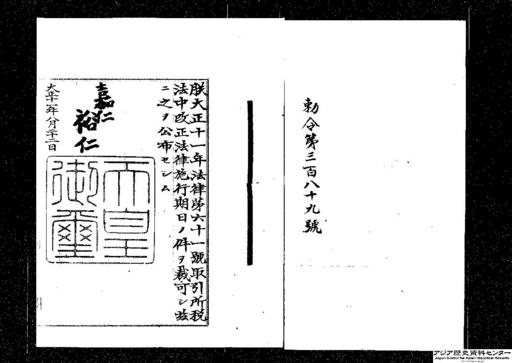 勅令第三百八十九號
朕大正十一年法律第六十一號取引所税
法中改正法律施行期日ノ件ヲ裁可シ茲
ニ之ヲ公布セシム
嘉仁
裕仁
大正十一年八月二十二日
天皇
御璽
アジア歴史資料センター
Japan Center for Asian Historical Records